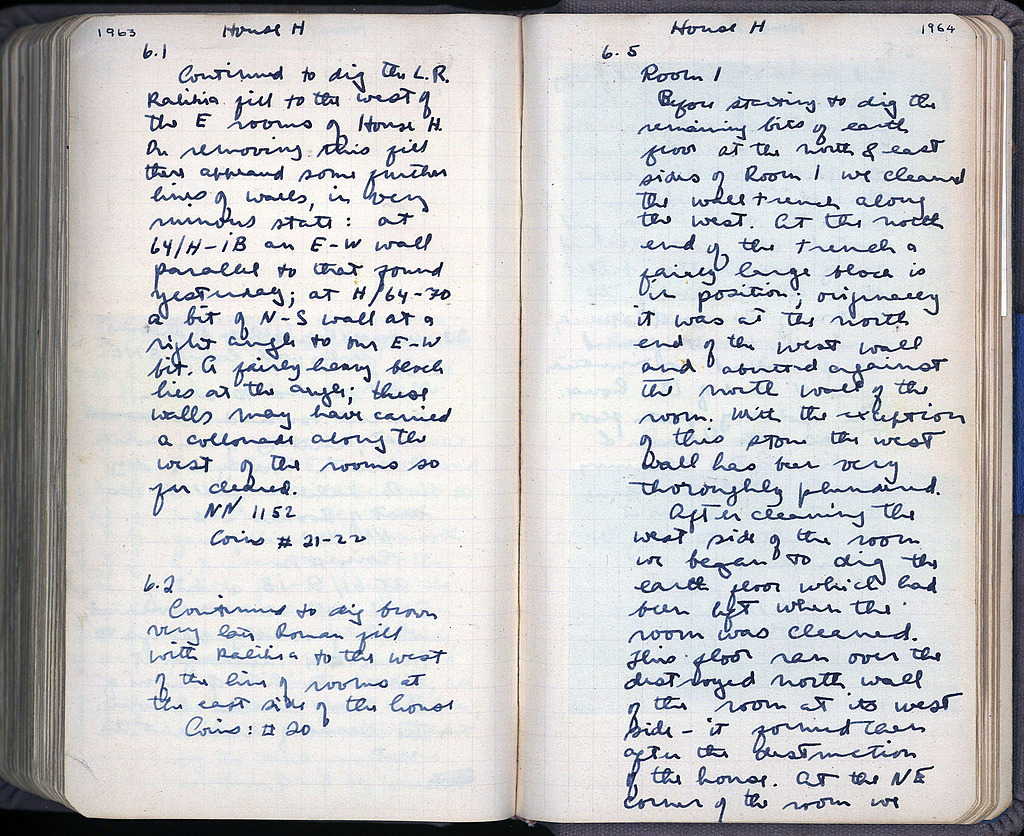 1963
House H
6.1
Continued to dig the L.R.
Ralikia fill to the west of
the E rooms of House H.
On removing this fill
there appeared some further
lines of walls, in very
ruinous state: at
64/H-IB an E-W wall
parallel to that found
yesterday; at H/64-70
a bit of N-S wall at a
right angle to our E-W
bit. A fairly heavy block
lies at the angle; these
walls may have carried
a collonade along the
west of the rooms so
far cleared.
NN 1152
Coins # 21-22
6.2
Continued to dig brown
very late Roman fill
with Ralikia to the west
of the line of rooms at
the east side of the house
Coins: # 20
House H
1964
6.5
Room 1
Before starting to dig the
remaining bits of earth
floor at the north & east
sides of Room 1 we cleaned
the wall trench along
the west. At the north
end of the trench a
fairly large block is
in position; originally
it was at the north
end of the west wall
and abutted against
the north wall of the
room. With the exception
of this stone the west
wall has been very
thoroughly plundered.
After cleaning the
west side of the room
we began to dig the
earth floor which had
been left when the
room was cleaned.
This floor ran over the
destroyed north wall
of the room at its west
side - it formed then
after the destruction
of the house. At the NE
corner of the room we